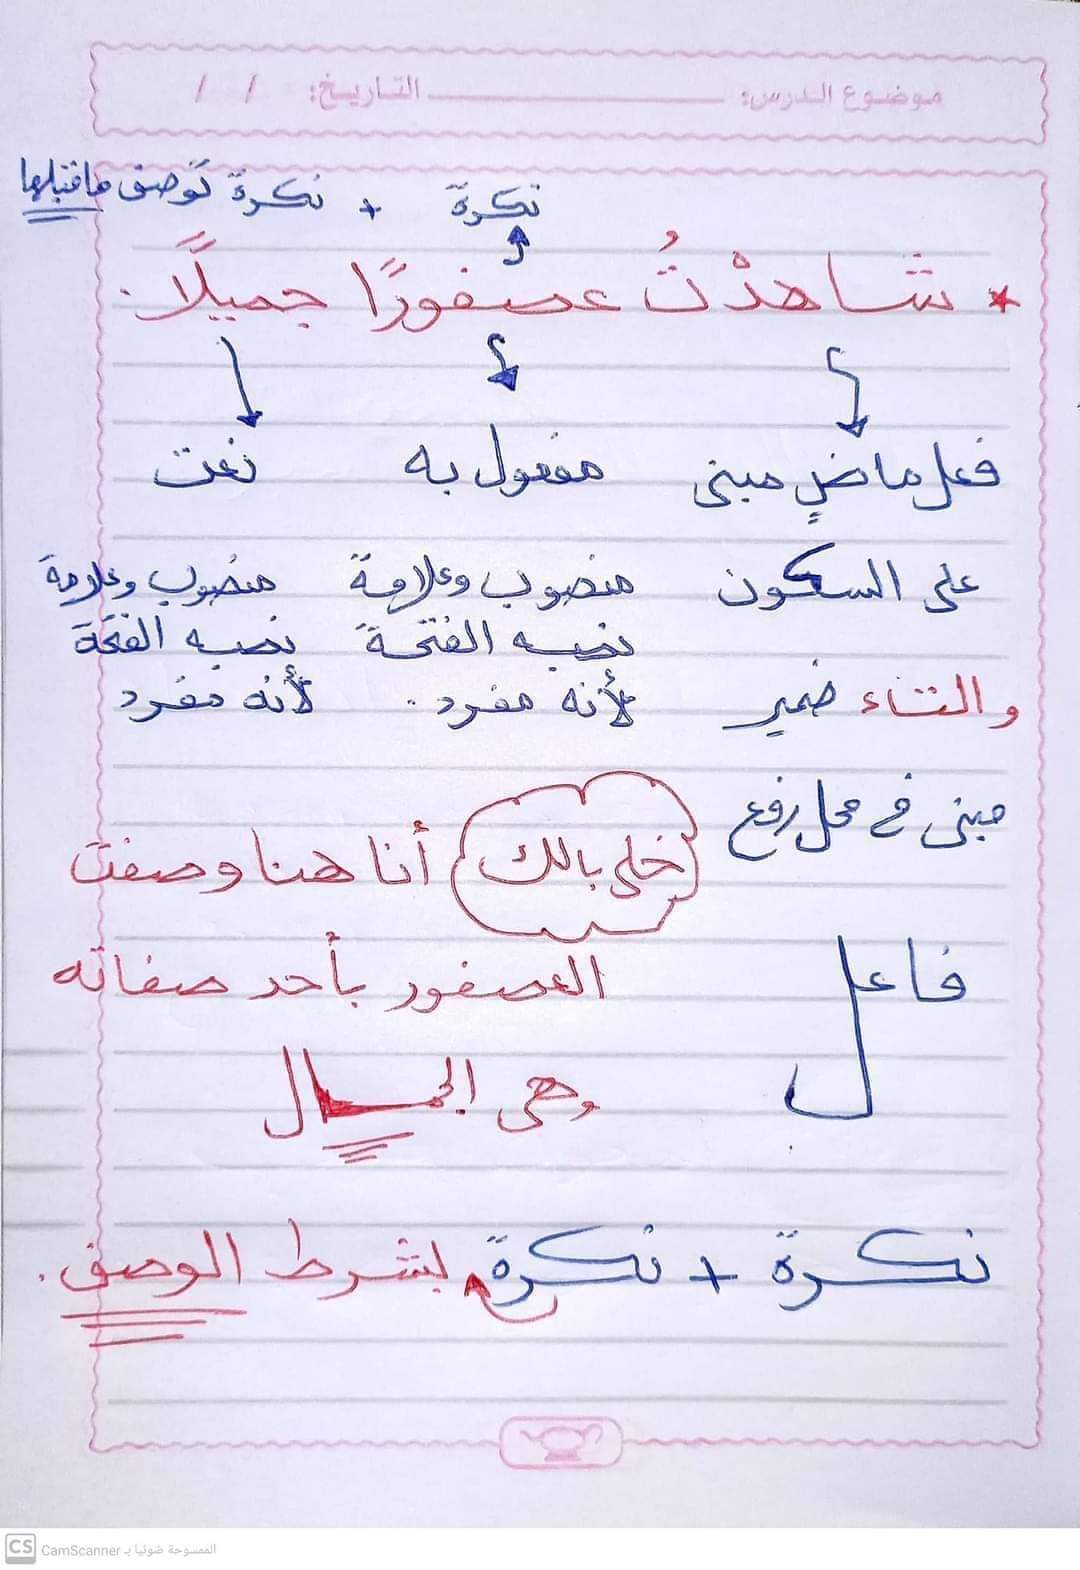 موضوع الدرس: التاريخ: / /
نكرة + نكرة توصف ماقبلها
* شاهدْتُ عصفورًا جميلًا.
فعل ماضٍ مبنى مفعول به نعت
على السكون منصوب وعلامة منصوب وعلامة
نصبه الفتحة نصبه الفتحة
والتاء ضمير لأنه مفرد. لأنه مفرد
مبنى فى محل رفع
خلى بالك أنا هنا وصفت
فاعل العصفور بأحد صفاته
وهى الجمال
نكرة + نكرة بشرط الوصف.
CS CamScanner الممسوحة ضوئيا بـ